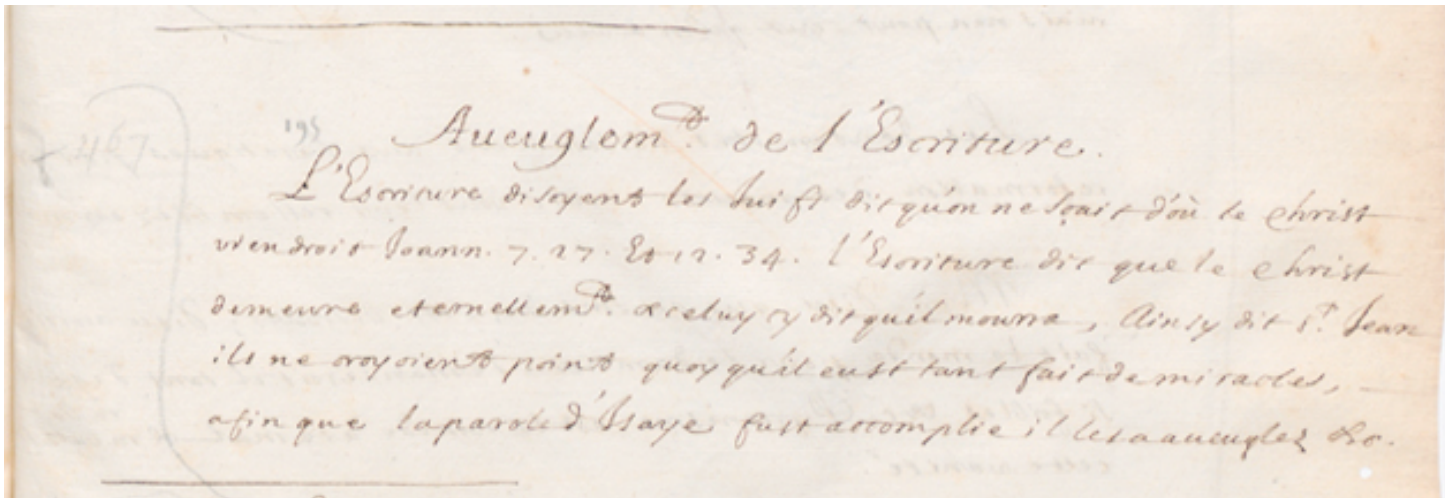 195
Aueuglemt. de l'Escriture.
f 467
L'Escriture disoyent les Juifs dit qu'on ne sçait d'où le Christ
viendroit Joann. 7. 27. Et 12. 34. l'Escriture dit que le Christ
demeure eternellemt. & celuy cy dit qu'il mourra, Ainsy dit St. Jean
ils ne croyoient point quoy qu'il eust tant fait de miracles,
afin que la parole d'Isaye fust accomplie il les a aueuglez &c.